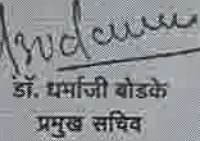 डॉ. धर्माजी बोडके
प्रमुख सचिव